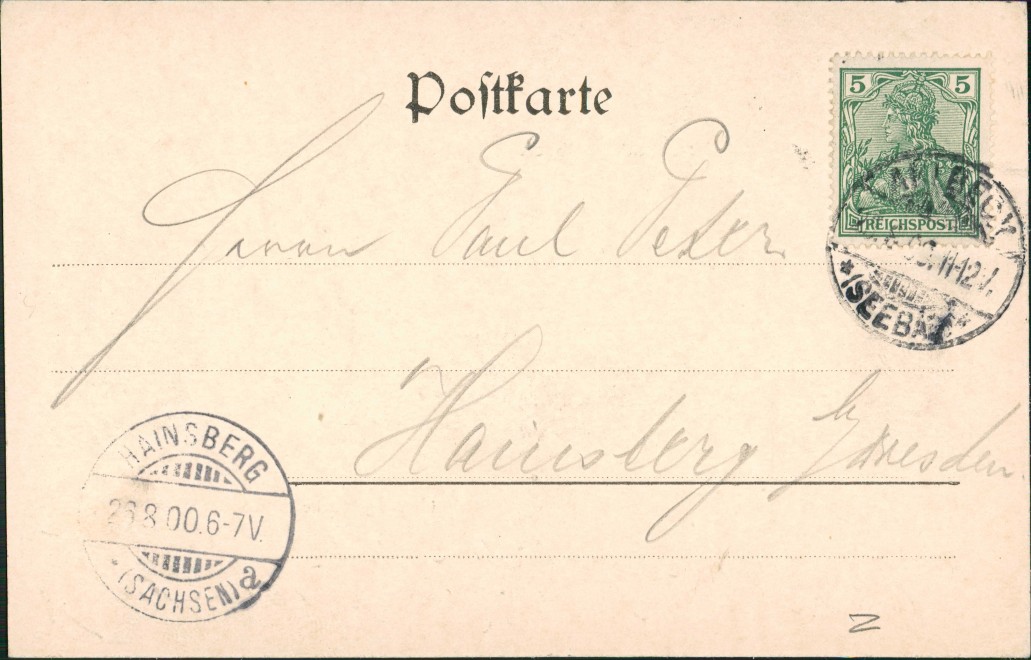 Postkarte
5 5
REICHSPOST
11-12V.
*(SEEBAD)*
Herrn Paul Peter
Hainsberg b/Dresden
HAINSBERG
26.8.00.6-7V.
*(SACHSEN) a
Z